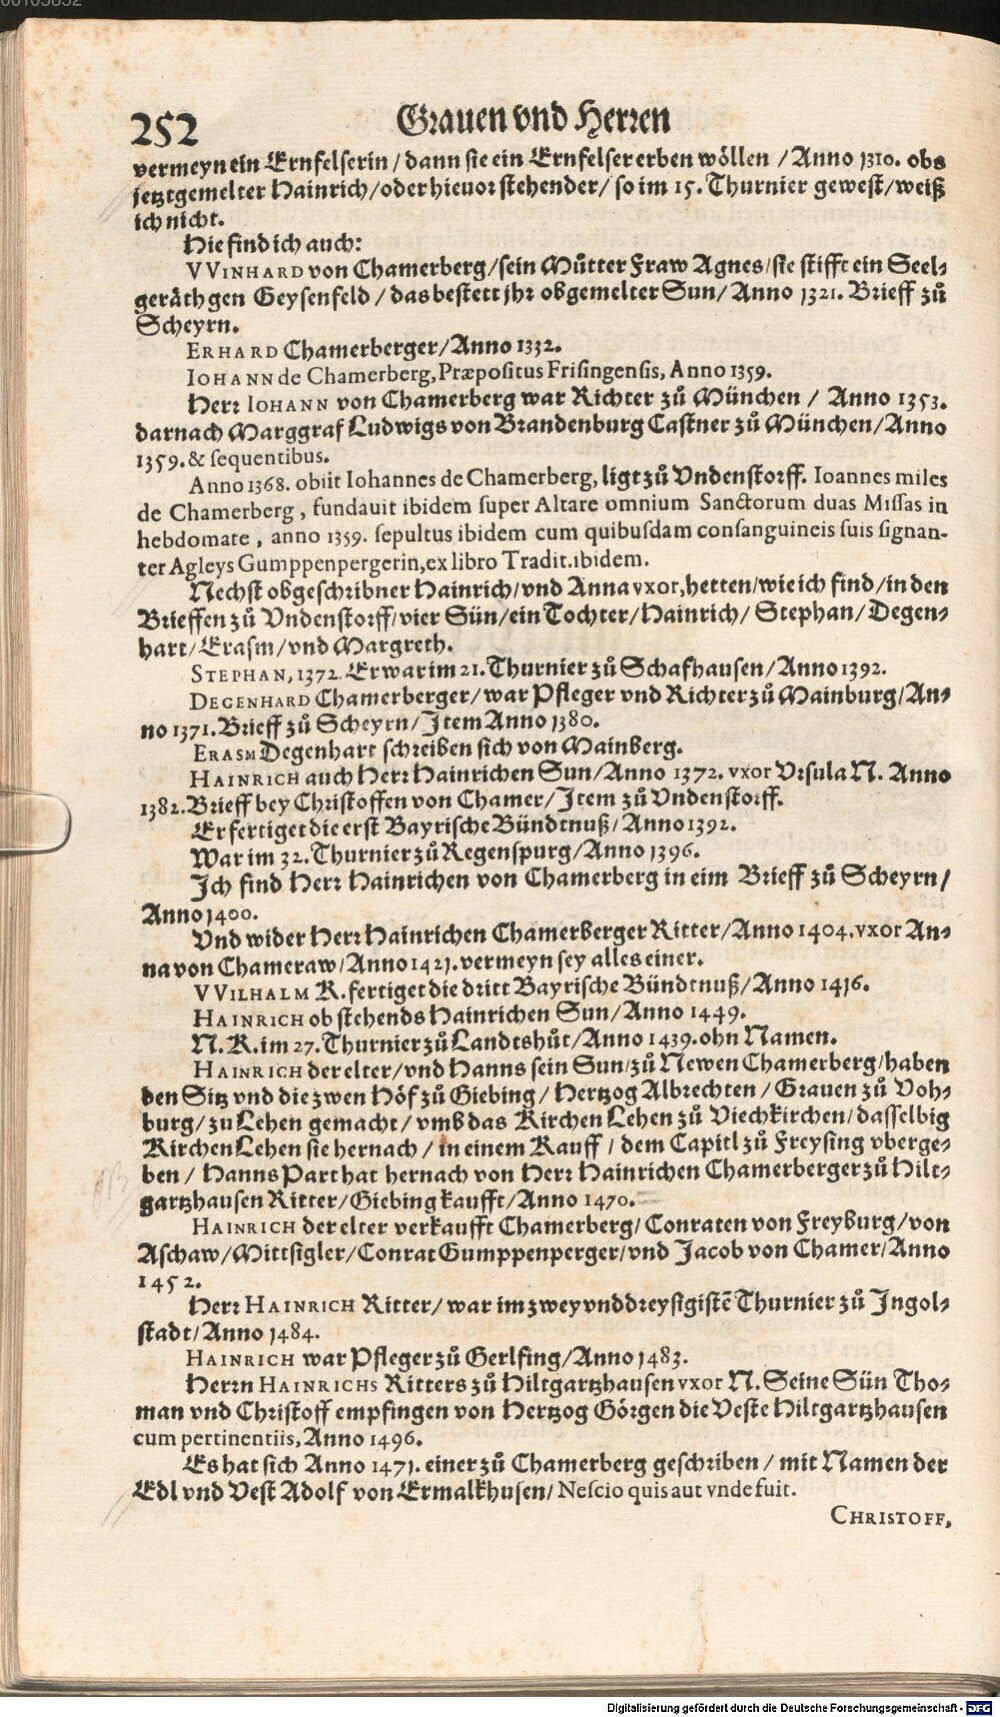 252
Grauen vnd Herren
vermeyn ein Ernfelserin / dann sie ein Ernfelser erben wöllen / Anno 1310. obs
jetztgemelter Hainrich / oder hieuor stehender / so im 15. Thurnier gewest / weiß
ich nicht.
Hie find ich auch:
VVINHARD von Chamerberg / sein Můtter Fraw Agnes / sie stifft ein Seel-
geräth gen Geysenfeld / das bestett jhr obgemelter Sun / Anno 1321. Brieff zů
Scheyrn.
ERHARD Chamerberger / Anno 1332.
IOHANN de Chamerberg, Præpositus Frisingensis, Anno 1359.
Herr IOHANN von Chamerberg war Richter zů München / Anno 1353.
darnach Marggraf Ludwigs von Brandenburg Castner zů München / Anno
1359. & sequentibus.
Anno 1368. obiit Iohannes de Chamerberg, ligt zů Vndenstorff. Ioannes miles
de Chamerberg, fundauit ibidem super Altare omnium Sanctorum duas Missas in
hebdomate, anno 1359. sepultus ibidem cum quibusdam consanguineis suis signan-
ter Agleys Gumppenpergerin, ex libro Tradit. ibidem.
Nechst obgeschribner Hainrich / vnd Anna vxor, hetten / wie ich find / in den
Brieffen zů Vndenstorff / vier Sün / ein Tochter / Hainrich / Stephan / Degen-
hart / Erasm / vnd Margreth.
STEPHAN, 1372. Er war im 21. Thurnier zů Schafhausen / Anno 1392.
DEGENHARD Chamerberger / war Pfleger vnd Richter zů Mainburg / An-
no 1371. Brieff zů Scheyrn / Item Anno 1380.
ERASM Degenhart schreiben sich von Mainberg.
HAINRICH auch Herr Hainrichen Sun / Anno 1372. vxor Vrsula N. Anno
1382. Brieff bey Christoffen von Chamer / Item zů Vndenstorff.
Er fertiget die erst Bayrische Bündtnuß / Anno 1392.
War im 32. Thurnier zů Regenspurg / Anno 1396.
Ich find Herr Hainrichen von Chamerberg in eim Brieff zů Scheyrn /
Anno 1400.
Vnd wider Herr Hainrichen Chamerberger Ritter / Anno 1404. vxor An-
na von Chameraw / Anno 1421. vermeyn sey alles einer.
VVILHALM K. fertiget die dritt Bayrische Bündtnuß / Anno 1416.
HAINRICH ob stehends Hainrichen Sun / Anno 1449.
N. K. im 27. Thurnier zů Landtshůt / Anno 1439. ohn Namen.
HAINRICH der elter / vnd Hanns sein Sun / zů Newen Chamerberg / haben
den Sitz vnd die zwen Höf zů Giebing / Hertzog Albrechten / Grauen zů Voh-
burg / zu Lehen gemacht / vmb das Kirchen Lehen zů Viechkirchen / dasselbig
Kirchen Lehen sie hernach / in einem Kauff / dem Capitl zů Freysing vberge-
ben / Hanns Part hat hernach von Herr Hainrichen Chamerberger zů Hilt-
gartzhausen Ritter / Giebing kaufft / Anno 1470.
HAINRICH der elter verkaufft Chamerberg / Conraten von Freyburg / von
Aschaw / Mittsigler / Conrat Gumppenperger / vnd Jacob von Chamer / Anno
1452.
Herr HAINRICH Ritter / war im zwey vnd dreysigistē Thurnier zů Ingol-
stadt / Anno 1484.
HAINRICH war Pfleger zů Gerlfing / Anno 1483.
Herrn HAINRICHS Ritters zů Hiltgartzhausen vxor N. Seine Sün Tho-
man vnd Christoff empfingen von Hertzog Görgen die Veste Hiltgartzhausen
cum pertinentiis, Anno 1496.
Es hat sich Anno 1471. einer zů Chamerberg geschriben / mit Namen der
Edl vnd Vest Adolf von Ermalkhusen / Nescio quis aut vnde fuit.
CHRISTOFF,
Digitalisierung gefördert durch die Deutsche Forschungsgemeinschaft - DFG